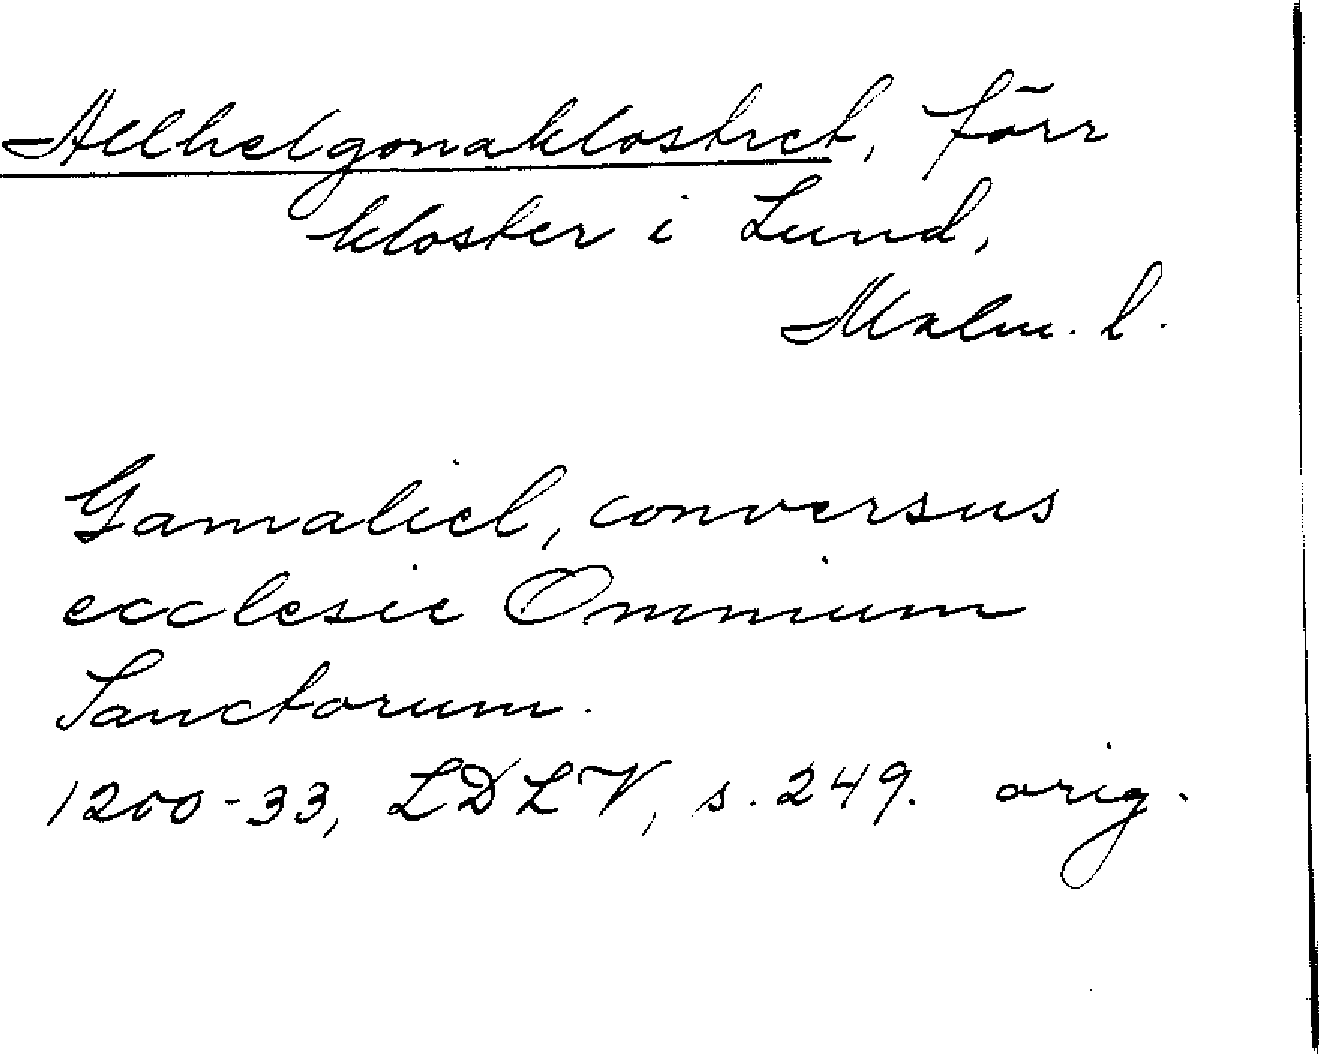 Allhelgonaklostret, förr
kloster i Lund,
Malm. l.
Gamaliel, conversus
ecclesie Omnium
Sanctorum.
1200-33, LDLV, s. 249. orig.